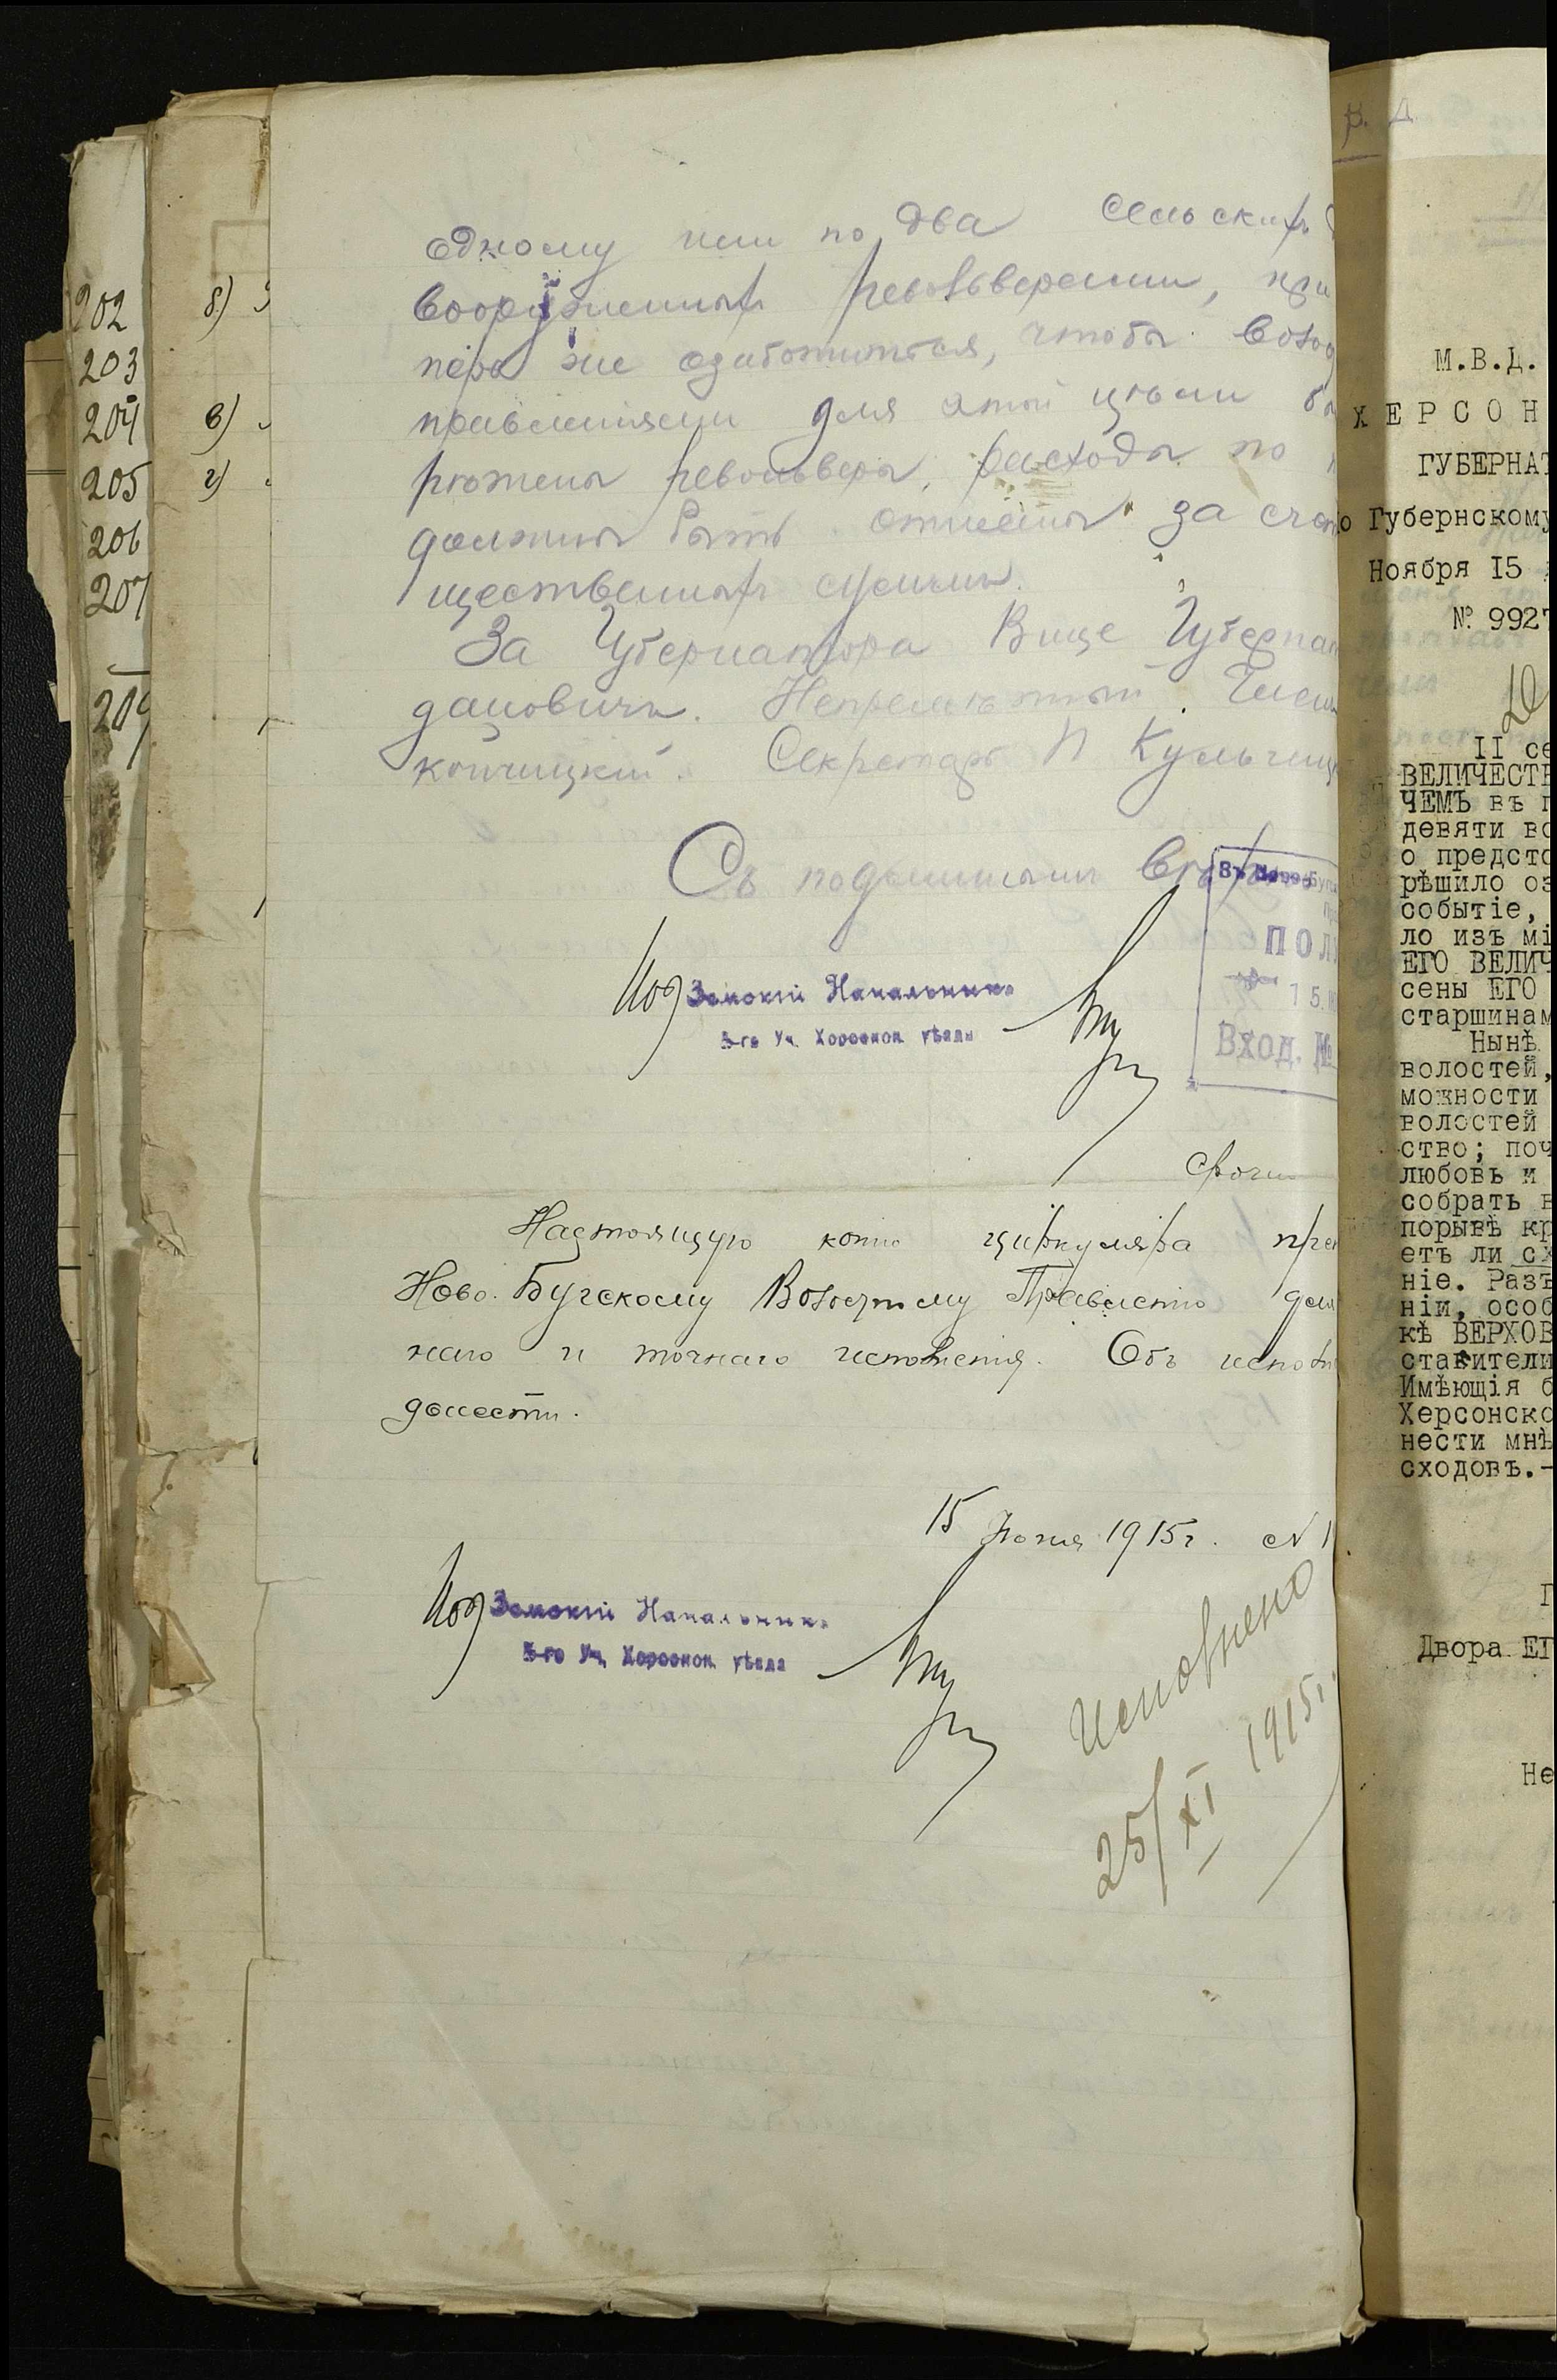 202
203
204
205
206
207
209
б)
в)
г)
одному или по два сельскихъ
вооруженныхъ револьверами, при
перь же озаботиться, чтобы волос
правленіями для этой цѣли бы
револьверы, расходы по
должны быть отнесены за счетъ
щественныхъ суммъ.
За Губернатора Вице Губернат
дановичъ. Непремѣнный Членъ
Секретарь П Кульчиц
Съ подлиннымъ вѣрно
Земскій Начальникъ
5-го Уч. Херсонск. уѣзда
Въ Ново-Буг
ПОЛ
15
Вход. №
Срочн
Настоящую копію циркуляра пре
Ново-Бугскому Волостному Правленію для
наго и точнаго исполненія. Объ исполн
донести.
15 Іюня 1915 г. N 1
Земскій Начальникъ
5-го Уч. Херсонск. уѣзда
Исполнено
25/XI 1915 г.
М.В.Д.
ХЕРСОН
ГУБЕРНАТ
по Губернскому
Ноября 15
№ 992
II се
ВЕЛИЧЕСТВ
ЧЕМЪ въ п
девяти во
о предсто
рѣшило оз
событіе,
ло изъ мі
ЕГО ВЕЛИЧ
сены ЕГО
старшинам
Нынѣ
волостей,
можности
волостей
ство; поч
любовь и
собрать в
порывѣ кр
етъ ли сх
ніе. Разъ
ніи, особ
кѣ ВЕРХОВ
ставители
Имѣющія б
Херсонско
нести мнѣ
сходовъ.-
Двора ЕГ
Не